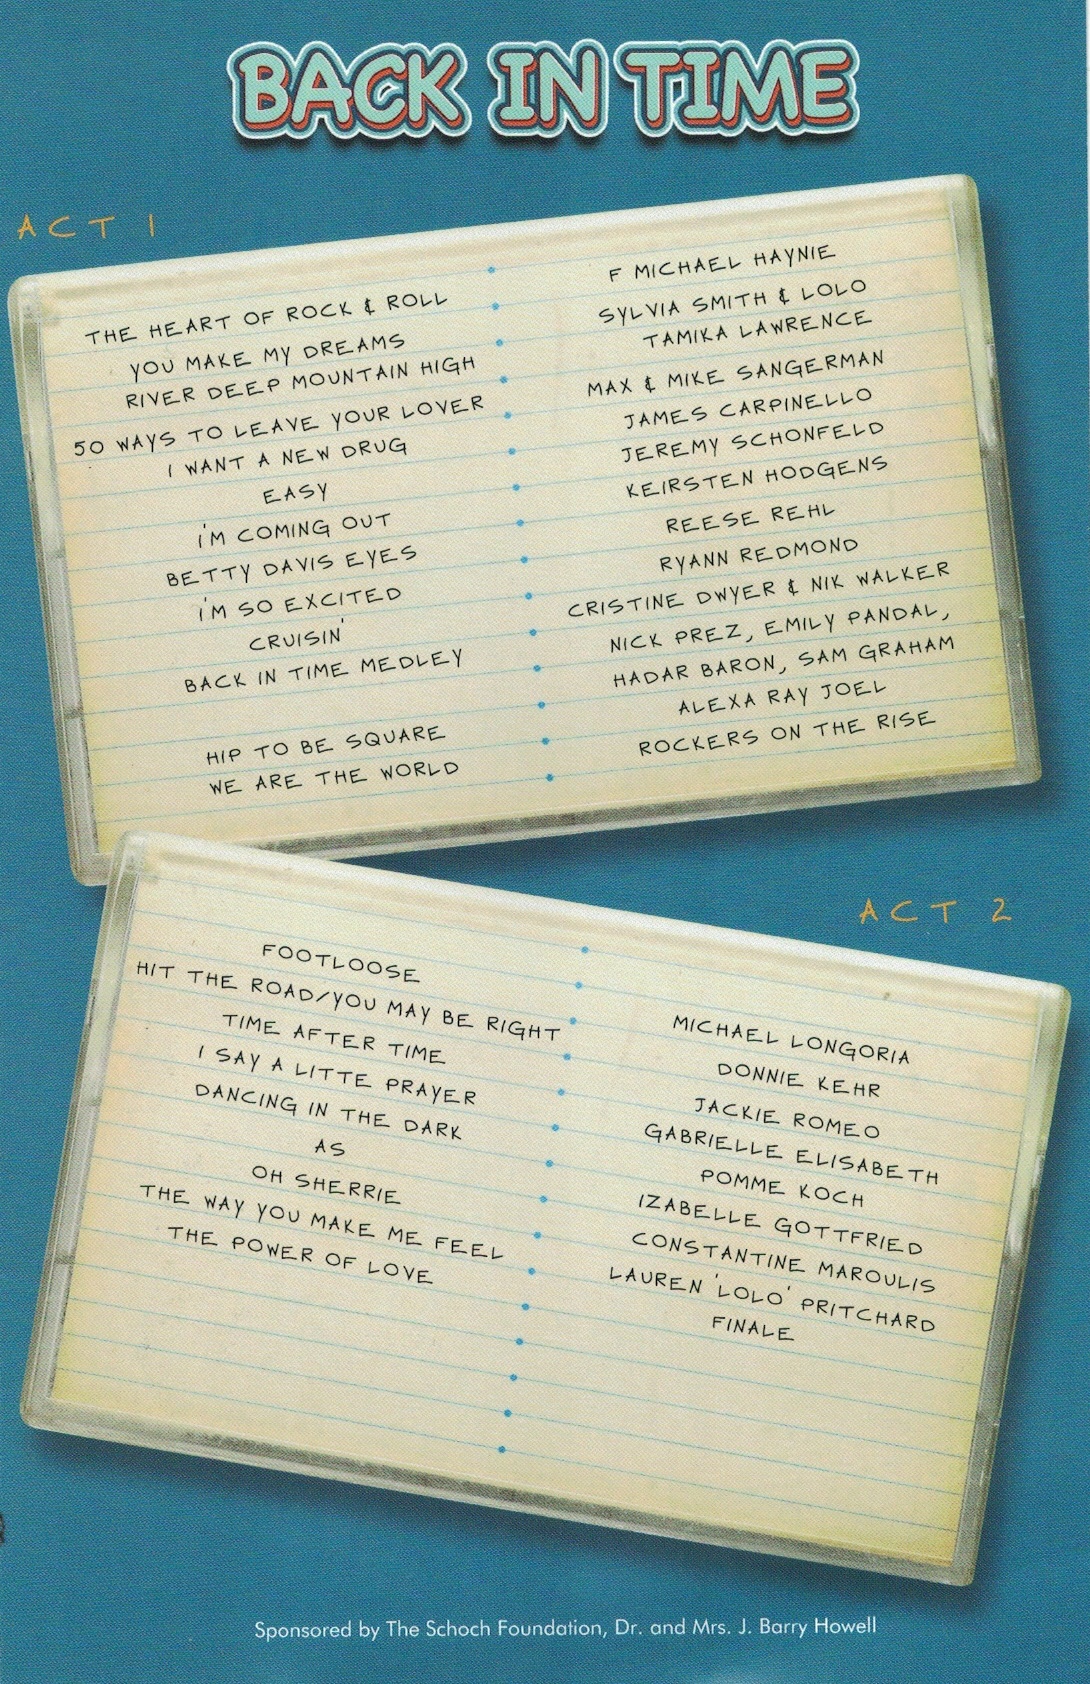 BACK IN TIME
ACT 1
THE HEART OF ROCK & ROLL
YOU MAKE MY DREAMS
RIVER DEEP MOUNTAIN HIGH
50 WAYS TO LEAVE YOUR LOVER
I WANT A NEW DRUG
EASY
I'M COMING OUT
BETTY DAVIS EYES
I'M SO EXCITED
CRUISIN'
BACK IN TIME MEDLEY
HIP TO BE SQUARE
WE ARE THE WORLD
F MICHAEL HAYNIE
SYLVIA SMITH & LOLO
TAMIKA LAWRENCE
MAX & MIKE SANGERMAN
JAMES CARPINELLO
JEREMY SCHONFELD
KEIRSTEN HODGENS
REESE REHL
RYANN REDMOND
CRISTINE DWYER & NIK WALKER
NICK PREZ, EMILY PANDAL,
HADAR BARON, SAM GRAHAM
ALEXA RAY JOEL
ROCKERS ON THE RISE
ACT 2
FOOTLOOSE
HIT THE ROAD/YOU MAY BE RIGHT
TIME AFTER TIME
I SAY A LITTE PRAYER
DANCING IN THE DARK
AS
OH SHERRIE
THE WAY YOU MAKE ME FEEL
THE POWER OF LOVE
MICHAEL LONGORIA
DONNIE KEHR
JACKIE ROMEO
GABRIELLE ELISABETH
POMME KOCH
IZABELLE GOTTFRIED
CONSTANTINE MAROULIS
LAUREN 'LOLO' PRITCHARD
FINALE
Sponsored by The Schoch Foundation, Dr. and Mrs. J. Barry Howell